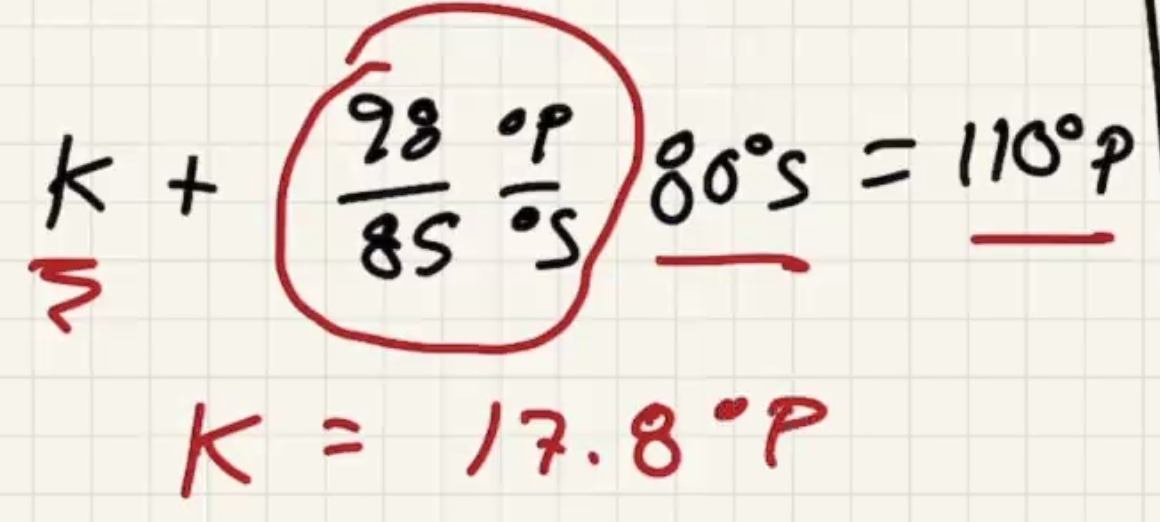 K + 98/85 °P/°S 80°S = 110°P
K = 17.8°P